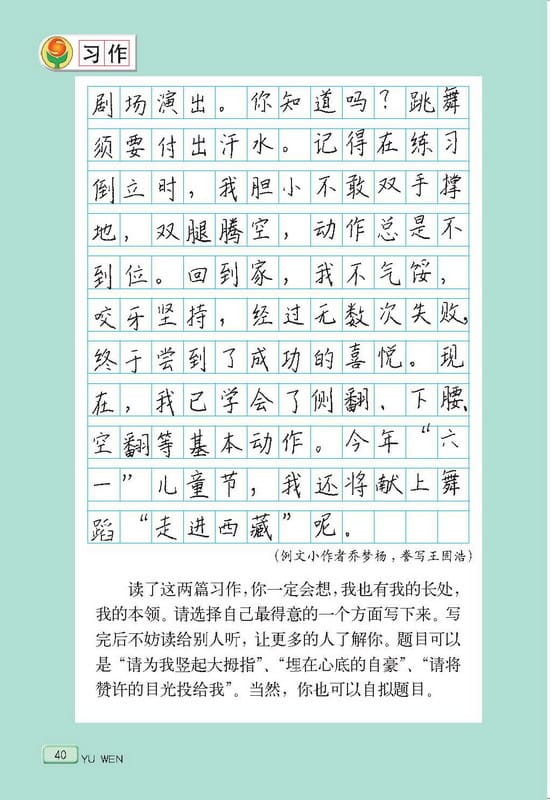 习作
剧场演出。你知道吗？跳舞
须要付出汗水。记得在练习
倒立时，我胆小不敢双手撑
地，双腿腾空，动作总是不
到位。回到家，我不气馁，
咬牙坚持，经过无数次失败，
终于尝到了成功的喜悦。现
在，我已学会了侧翻、下腰、
空翻等基本动作。今年“六
一”儿童节，我还将献上舞
蹈“走进西藏”呢。
（例文小作者乔梦杨，誊写王囿浩）
读了这两篇习作，你一定会想，我也有我的长处，
我的本领。请选择自己最得意的一个方面写下来。写
完后不妨读给别人听，让更多的人了解你。题目可以
是“请为我竖起大拇指”、“埋在心底的自豪”、“请将
赞许的目光投给我”。当然，你也可以自拟题目。
40 YU WEN